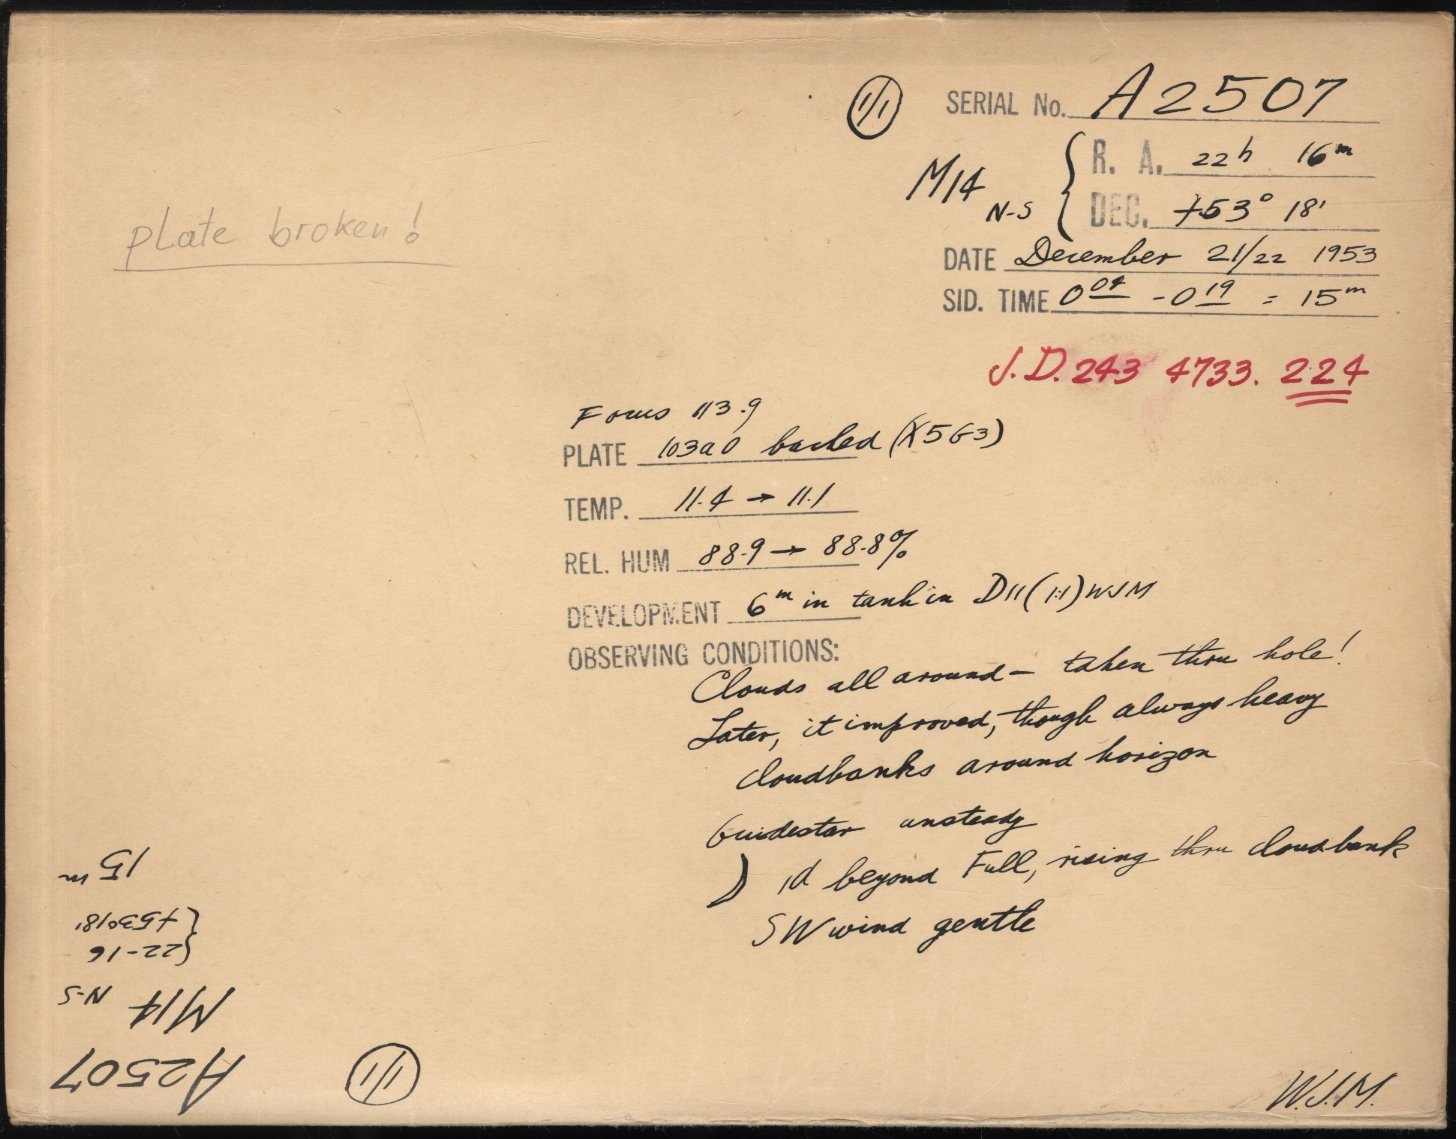 (1/1) SERIAL No. A2507
M14 N-S { R. A. 22h 16m
DEC. +53° 18'
DATE December 21/22 1953
SID. TIME 0 04 - 0 19 = 15m
J.D. 243 4733. 224
plate broken!
Focus 113.9
PLATE 103a0 backed (X5G3)
TEMP. 11.4 → 11.1
REL. HUM 88.9 → 88.8%
DEVELOPMENT 6m in tank in D11 (1:1) WJM
OBSERVING CONDITIONS:
Clouds all around – taken thru hole!
Later, it improved, though always heavy
cloudbanks around horizon
Guidestar unsteady
) 1d beyond Full, rising thru cloudbank
SW wind gentle
W.J.M.
(1/1)
A2507
M14 N-S
{22-16
{+53°18'
15m